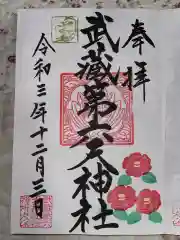 奉拝
武蔵第六天神社
令和三年十二月三日